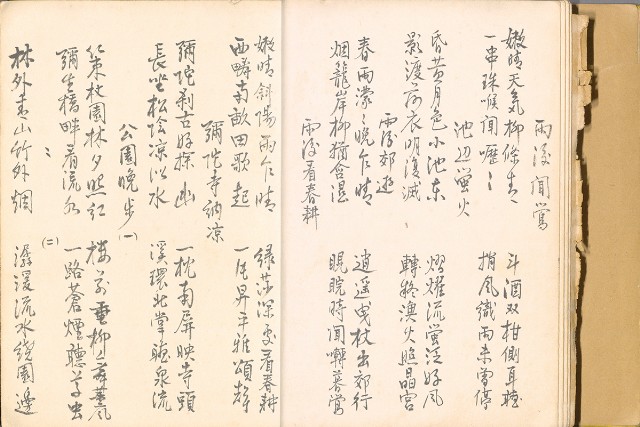 雨後聞鶯
嫩晴天氣柳條青 斗酒双柑側耳聽
一串珠喉聞嚦々 捎風織雨未曾停
池辺螢火
昏黄月色小池东 熠燿流螢泛好風
影渡荷衣明復滅 轉疑漁火照晶宮
雨後郊遊
春雨濛々晚乍晴 逍遥曳杖出郊行
烟籠岸柳猶含湿 睍睆時聞囀暮鶯
雨後看春耕
嫩晴斜陽雨乍晴 綠莎深处看春耕
西疇南畝田歌起 一片昇平雅頌聲
彌陀寺納凉
彌陀刹古好探幽 一枕南屏映寺頭
長坐松陰凉似水 溪環北掌聽泉流
公園晚步(一)
策杖園林夕照紅 楼前垂柳舞薰風
彌生橋畔看流水 一路蒼煙聽草虫
〃 (二)
林外青山竹外烟 潺湲流水繞園邊